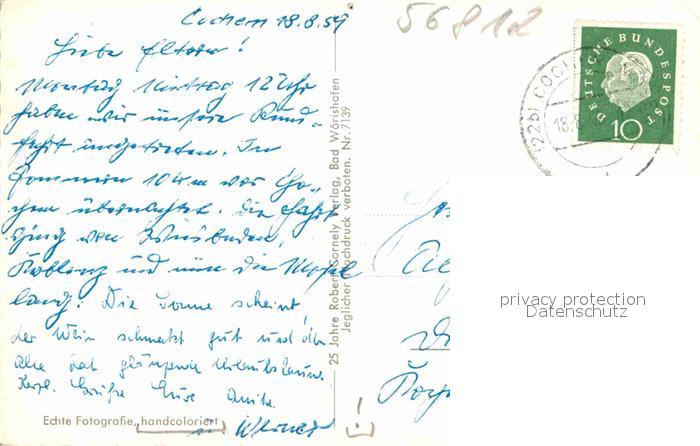 Cochem 18.8.59
Liebe Eltern!
Montag Mittag 12 Uhr
haben wir unsere Rund-
fahrt angetreten. In
Pommern 10 km vor Co-
chem übernachtet. Die Fahrt
ging von Wiesbaden,
Koblenz und nun die Mosel
lang. Die Sonne scheint
der Wein schmeckt gut und
alle hat glänzende Urlaubslaune.
Herzl. Grüße Eure Anita
u. Werner
Echte Fotografie, handcoloriert
25 Jahre Robert Cornely Verlag, Bad Wörishofen
Jeglicher Nachdruck verboten. Nr. 7139
56812
(22b) COCH
18.8
DEUTSCHE BUNDESPOST
10
privacy protection
Datenschutz